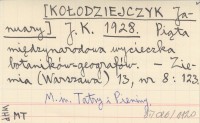 [KOŁODZIEJCZYK Ja-
nuary] J.K. 1928. Piąta
międzynarodowa wycieczka
botaników-geografów. - Zie-
mia (Warszawa) 13, nr 8: 123.
M.in. Tatry i Pieniny
WHP MT